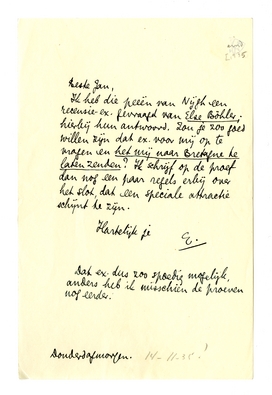 Beste Jan,
Ik heb die peeën van Nijgh een
recensie-ex. gevraagd van Else Böhler;
hierbij hun antwoord. Zou je zoo goed
willen zijn dat ex. voor mij op te
vragen en het mij naar Bretagne te
laten zenden? Ik schrijf op de proef
dan nog een paar regels erbij over
het slot, dat een speciale attractie
schijnt te zijn.
Hartelijk je
E.
Dat ex. dus zoo spoedig mogelijk,
anders heb ik misschien de proeven
nog eerder.
Donderdagmorgen. 14-11-35!